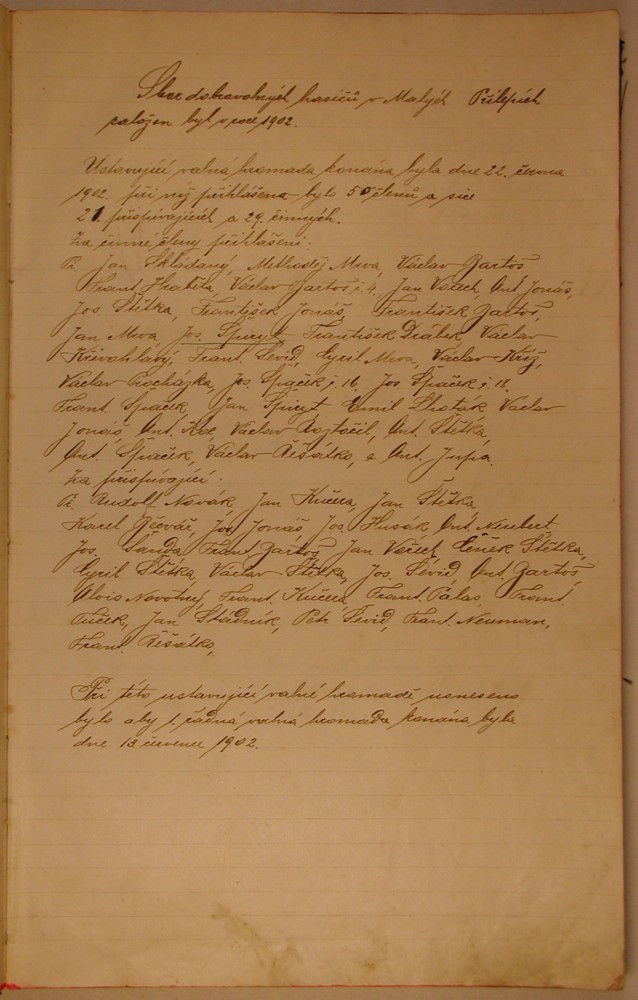 Sbor dobrovolných hasičů v Malých Přílepích
založen byl v roce 1902.
Ustavující valná hromada konána byla dne 22. června
1902. při níž přihlášeno bylo 50 členů a sice
21. přispívajících a 29. činných.
Za činné členy přihlášeni:
P. Jan Skládaný, Methoděj Mrva, Václav Bartoš
Frant. Václav Bartoš č. 4, Jan Ant. Jonáš,
Jos. Štětka, František Jonáš, František Bartoš,
Jan Mrva, Jos. Špicyt František Drábek Václav
Křivohlavý, Frant. Sevid, Cyril Mrva, Václav Kříž,
Václav Procházka, Jos. Špaček č. 16, Jos Špaček č. 18.
Frant. Špaček, Jan Špicyt Emil Lhoták, Václav
Jonáš, Ant. Václav Ant. Štětka,
Ant. Špaček, Václav Řišátko, a Ant. Jupa.
Za přispívající:
P. Rudolf Novák, Jan Kučera, Jan Štětka,
Karel Jos Jonáš, Jos Husák, Ant. Neubert
Jos. Šanda, Frant. Bartoš, Jan Čeněk Štětka,
Cyril Štětka, Václav Štětka, Jos. Sevid, Ant. Bartoš,
Alois Novotný, Frant. Kučera, Frant. Palas, Frant.
Tuček, Jan Stádník, Petr Sevid, Frant. Neuman,
Frant. Řišátko,
Při této ustavující valné hromadě usneseno
bylo aby 1. řádná valná hromada konána byla
dne 13 července 1902.